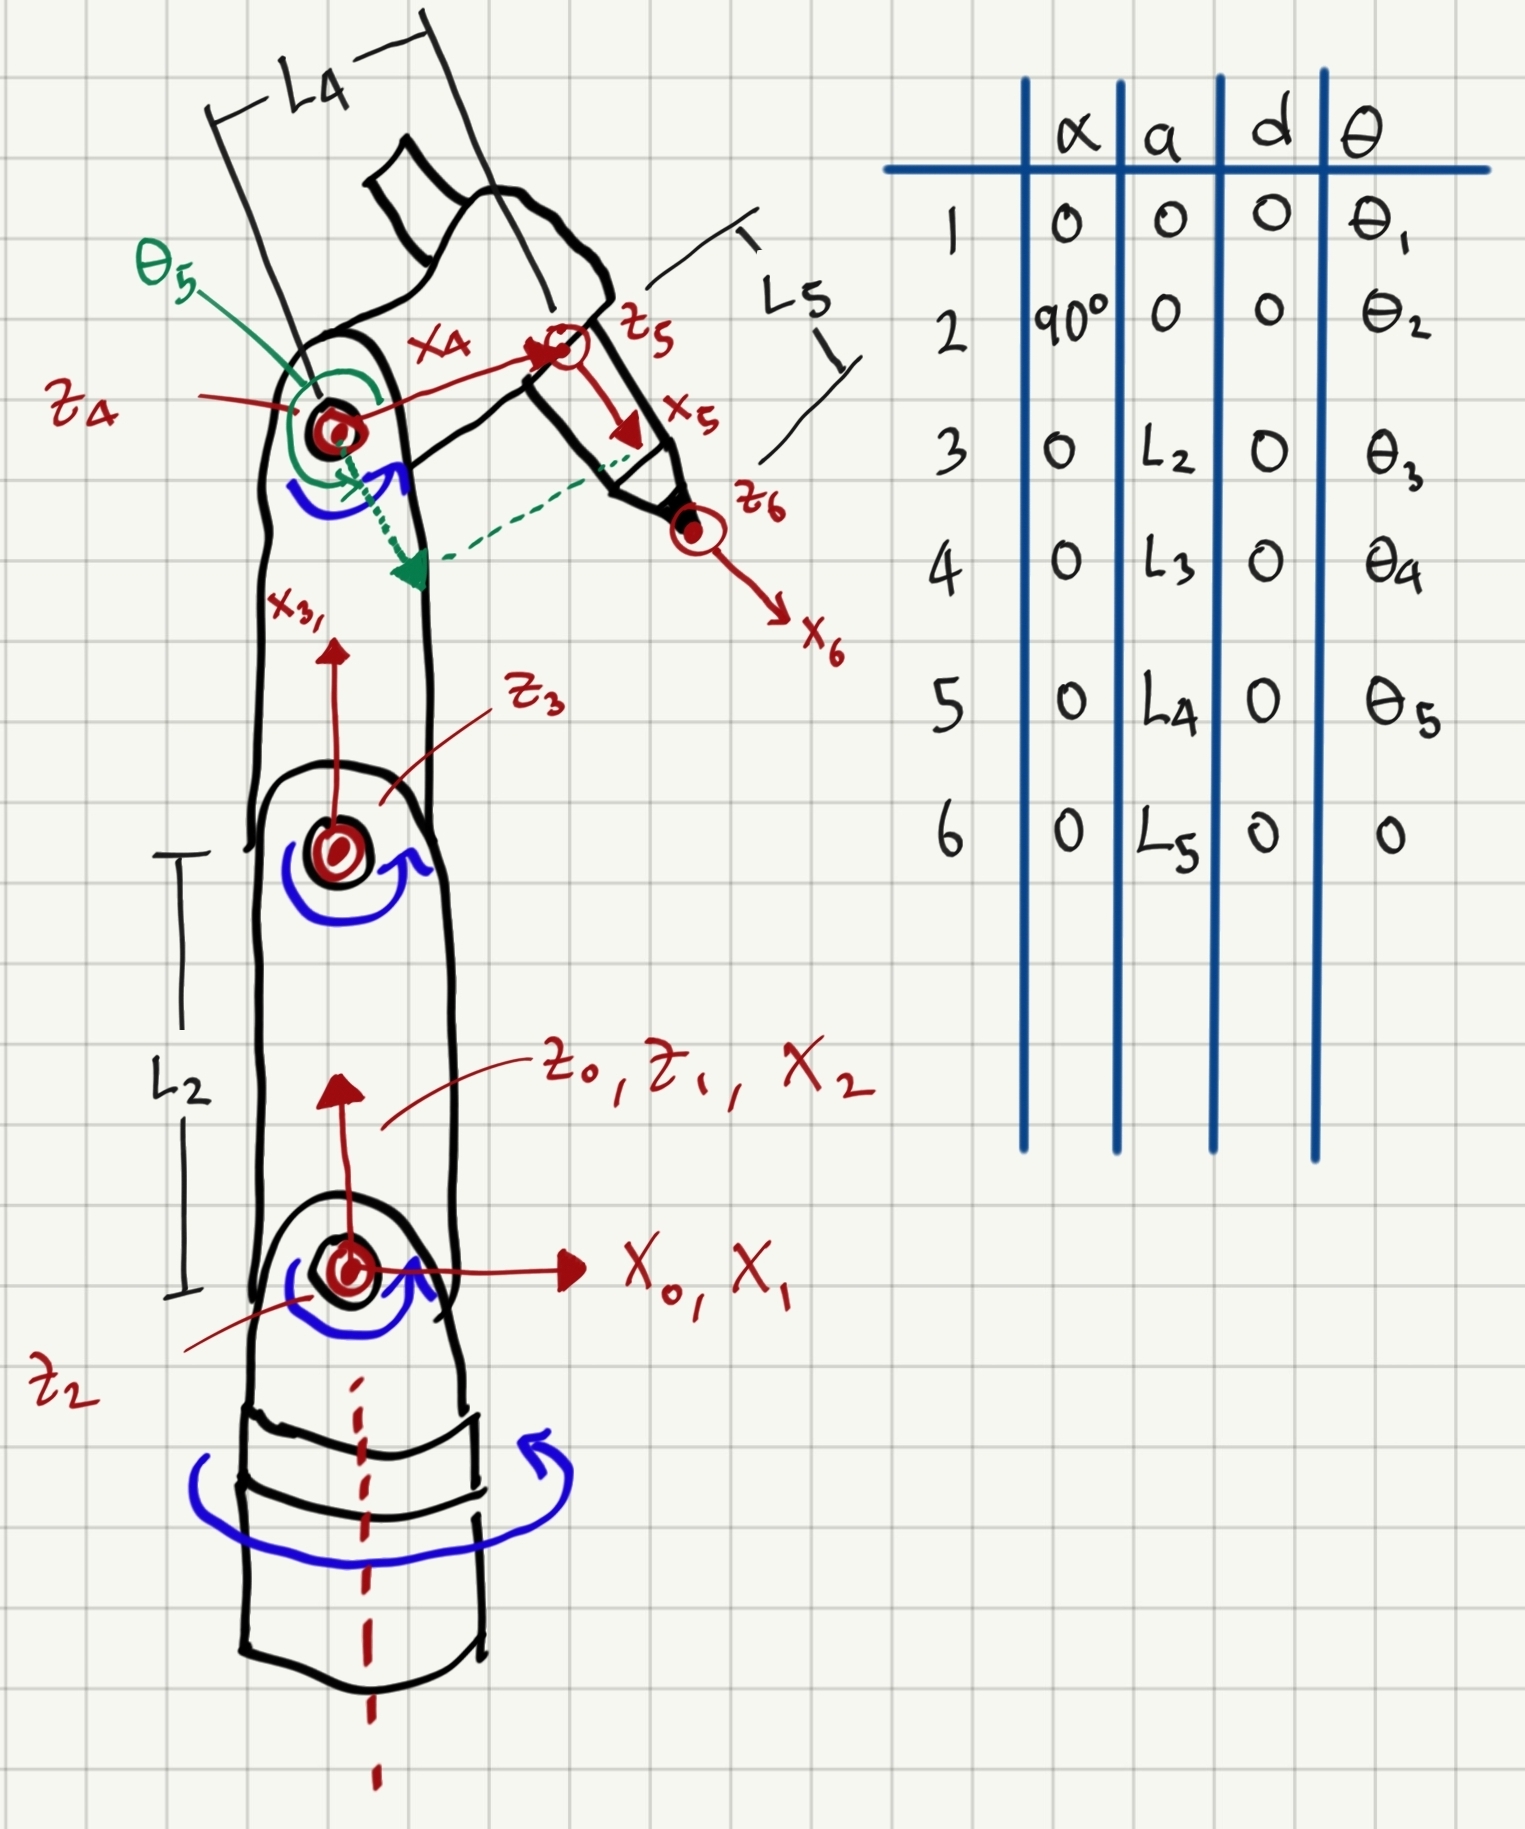 L4
θ5
L5
z5
x4
z4
x5
z6
x6
x3,
z3
L2
z0, z1, x2
x0, x1
z2
α a d θ
1 0 0 0 θ1
2 90° 0 0 θ2
3 0 L2 0 θ3
4 0 L3 0 θ4
5 0 L4 0 θ5
6 0 L5 0 0